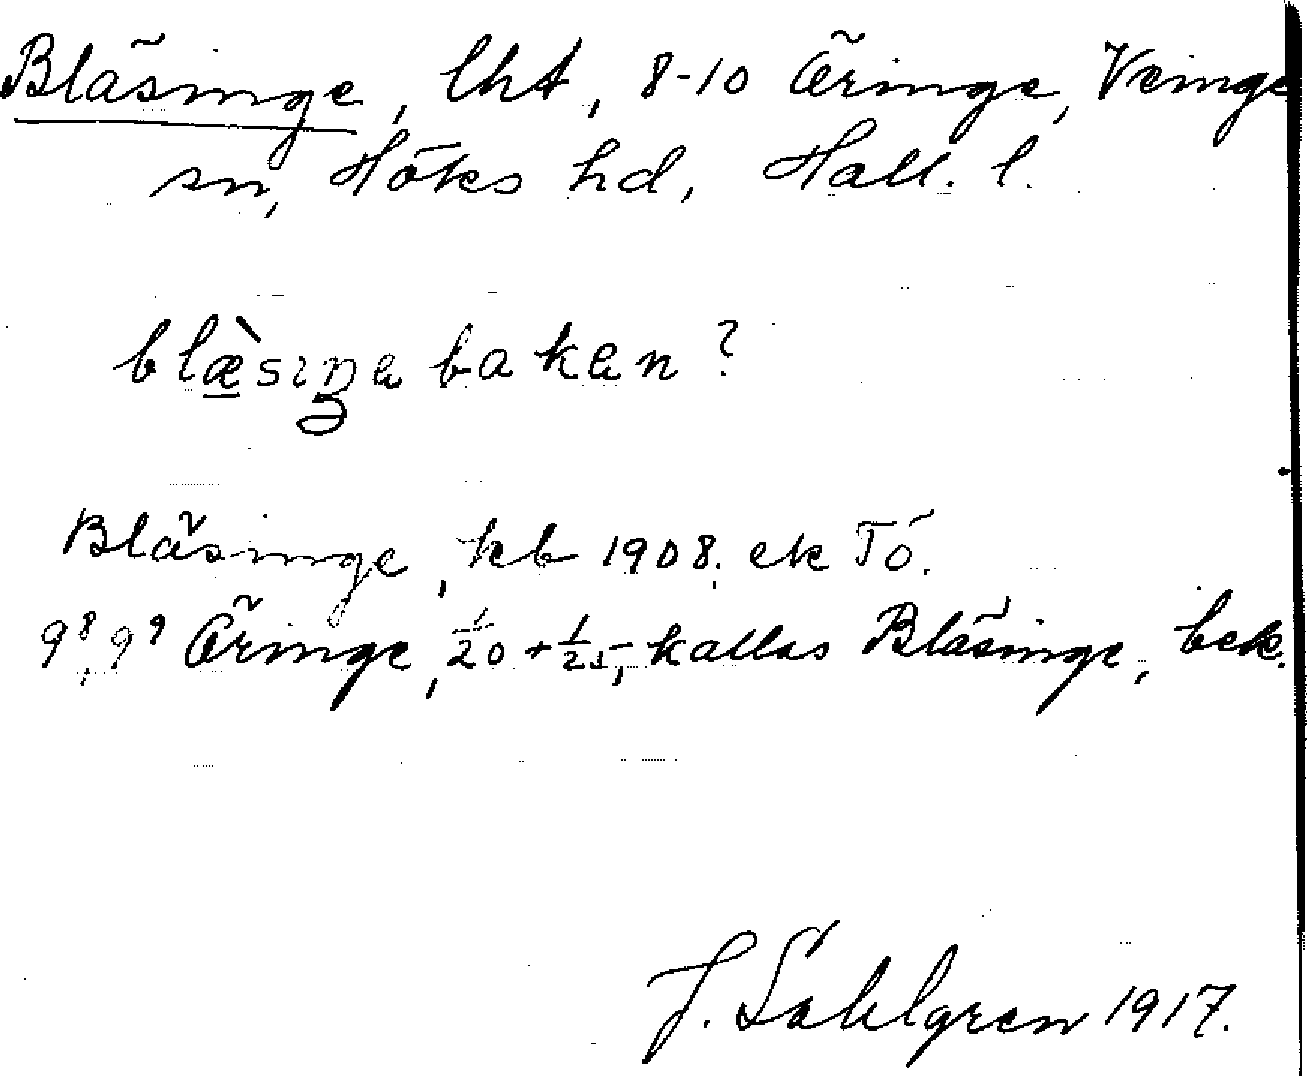 Bläsinge, lht, 8-10 Äringe, Veinge
sn, Höks hd, Hall. l.
blæ̀siŋabakan?
Bläsinge, kb 1908. ek Tö.
9⁸, 9⁹ Äringe, 1/20 + 1/25, kallas Bläsinge, bek.
J. Sahlgren 1917.